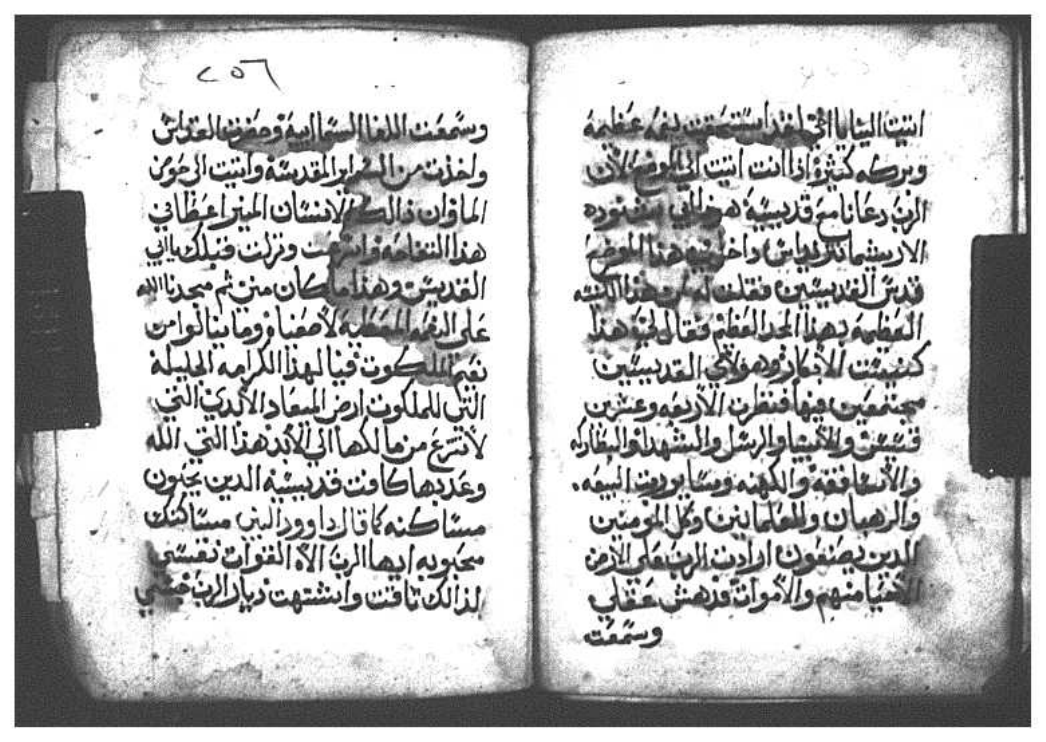 اتيت الينا يا ابي لقد استحقيت نعمه عظيمه
وبركه كثيره اذا انت اتيت الي الموضع لان
الرب دعانا مع قديسيه
الارشمائدريدس داخل هذا الموضع
قدس القديسين فقلت له لمن هذا الكنيسه
العظيمه بهذا المجد العظيم فقال لي هذا
كنيست الابكار وهولاي القديسين
مجتمعين فيها فنظرت الاربعه وعشرين
قسيس والانبيا والرسل والشهدا والبطاركه
والاساقفه والكهنه وساير رتب البيعه
والرهبان والعلمانيين وكل المومنين
الدين يصنعون ارادت الرب علي الارض
الاحيا منهم والاموات فدهش عقلي
وسمعت
٢٥٦
وسمعت اللغا السماييه وحضرت القداس
واخذت من السراير المقدسه واتيت الي حوض
الما وان ذالك الانسان المنير اعطاني
هذا التفاحه ونزلت قبلك يا ابي
القديس وهذا ما كان مني ثم مجدنا الله
علي النعمه المعطيه لاصفياه وما ينالوا من
نعيم الملكوت فيا لهذا الكرامه الجليله
التي للملكوت ارض الميعاد الابدي التي
لا تنزع من مالكها الي الابد هذا التي الله
وعد بها كافت قديسيه الدين يحبون
مساكنه كما قال داوود النبي مساكنك
محبوبه ايها الرب الاه القوات نفسي
لذالك تاقت واشتهت ديار الرب